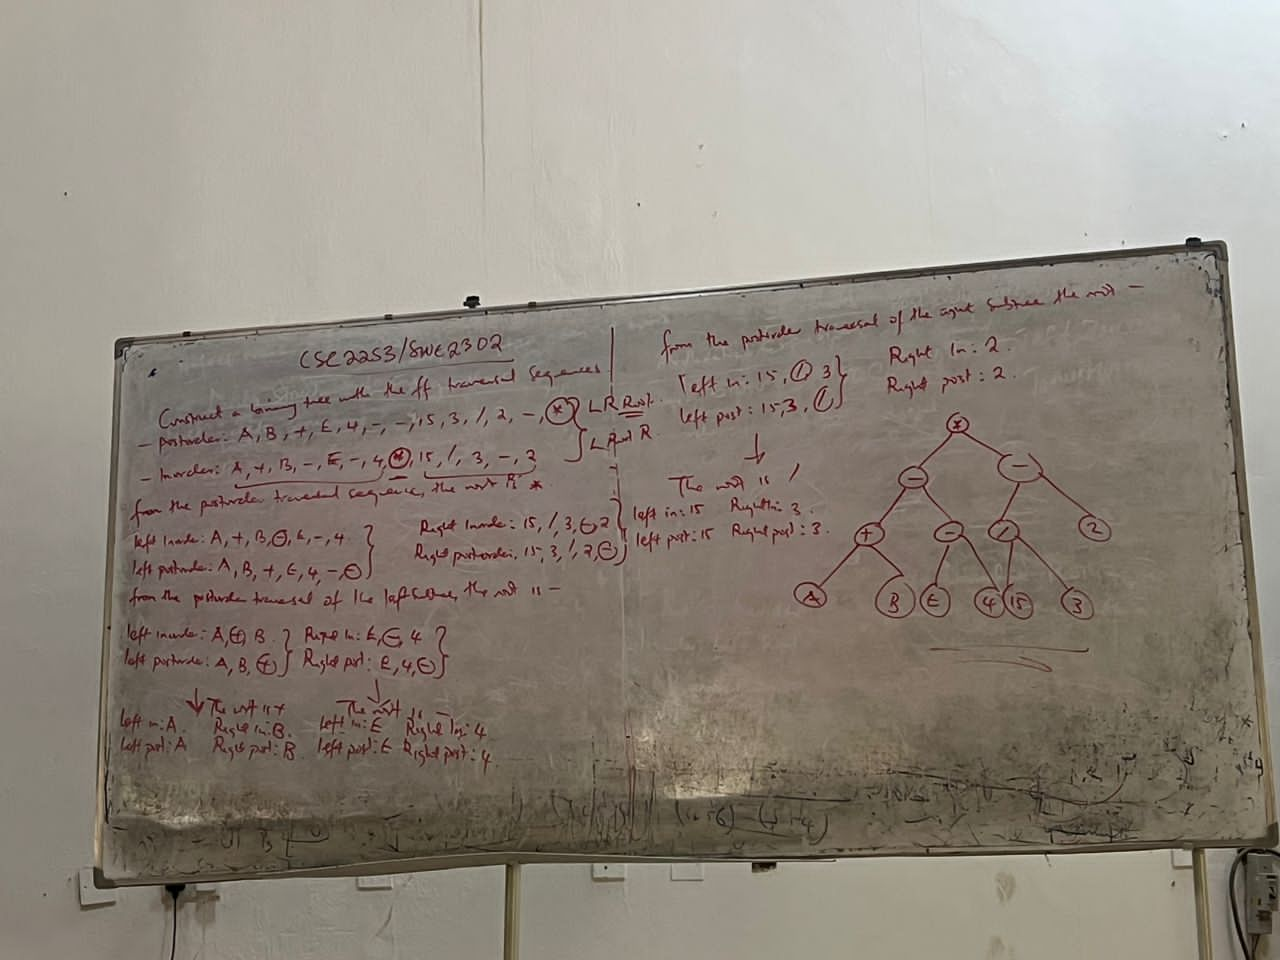 CSC2253/SWE2302
Construct a binary tree with the ff traversal sequences
- Postorder: A, B, +, E, 4, -, -, 15, 3, /, 2, -, * } L R Root.
- Inorder: A, +, B, -, E, -, 4, *, 15, /, 3, -, 2 } L Root R.
from the postorder traversal sequence, the root is *
left Inorder: A, +, B, -, E, -, 4.
left postorder: A, B, +, E, 4, -, -
Right Inorder: 15, /, 3, -, 2
Right postorder: 15, 3, /, 2, -
from the postorder traversal of the left subtree, the root is -
left inorder: A, +, B.
left postorder: A, B, +
Right In: E, -, 4
Right post: E, 4, -
The root is +
left in: A. Right in: B.
left post: A Right post: B
The root is -
left in: E Right In: 4
left post: E Right post: 4
from the postorder traversal of the right subtree the root -
left in: 15, /, 3
left post: 15, 3, /
Right In: 2.
Right post: 2.
The root is /
left in: 15 Right In: 3.
left post: 15 Right post: 3.
*
- -
+ - / 2
A B E 4 15 3